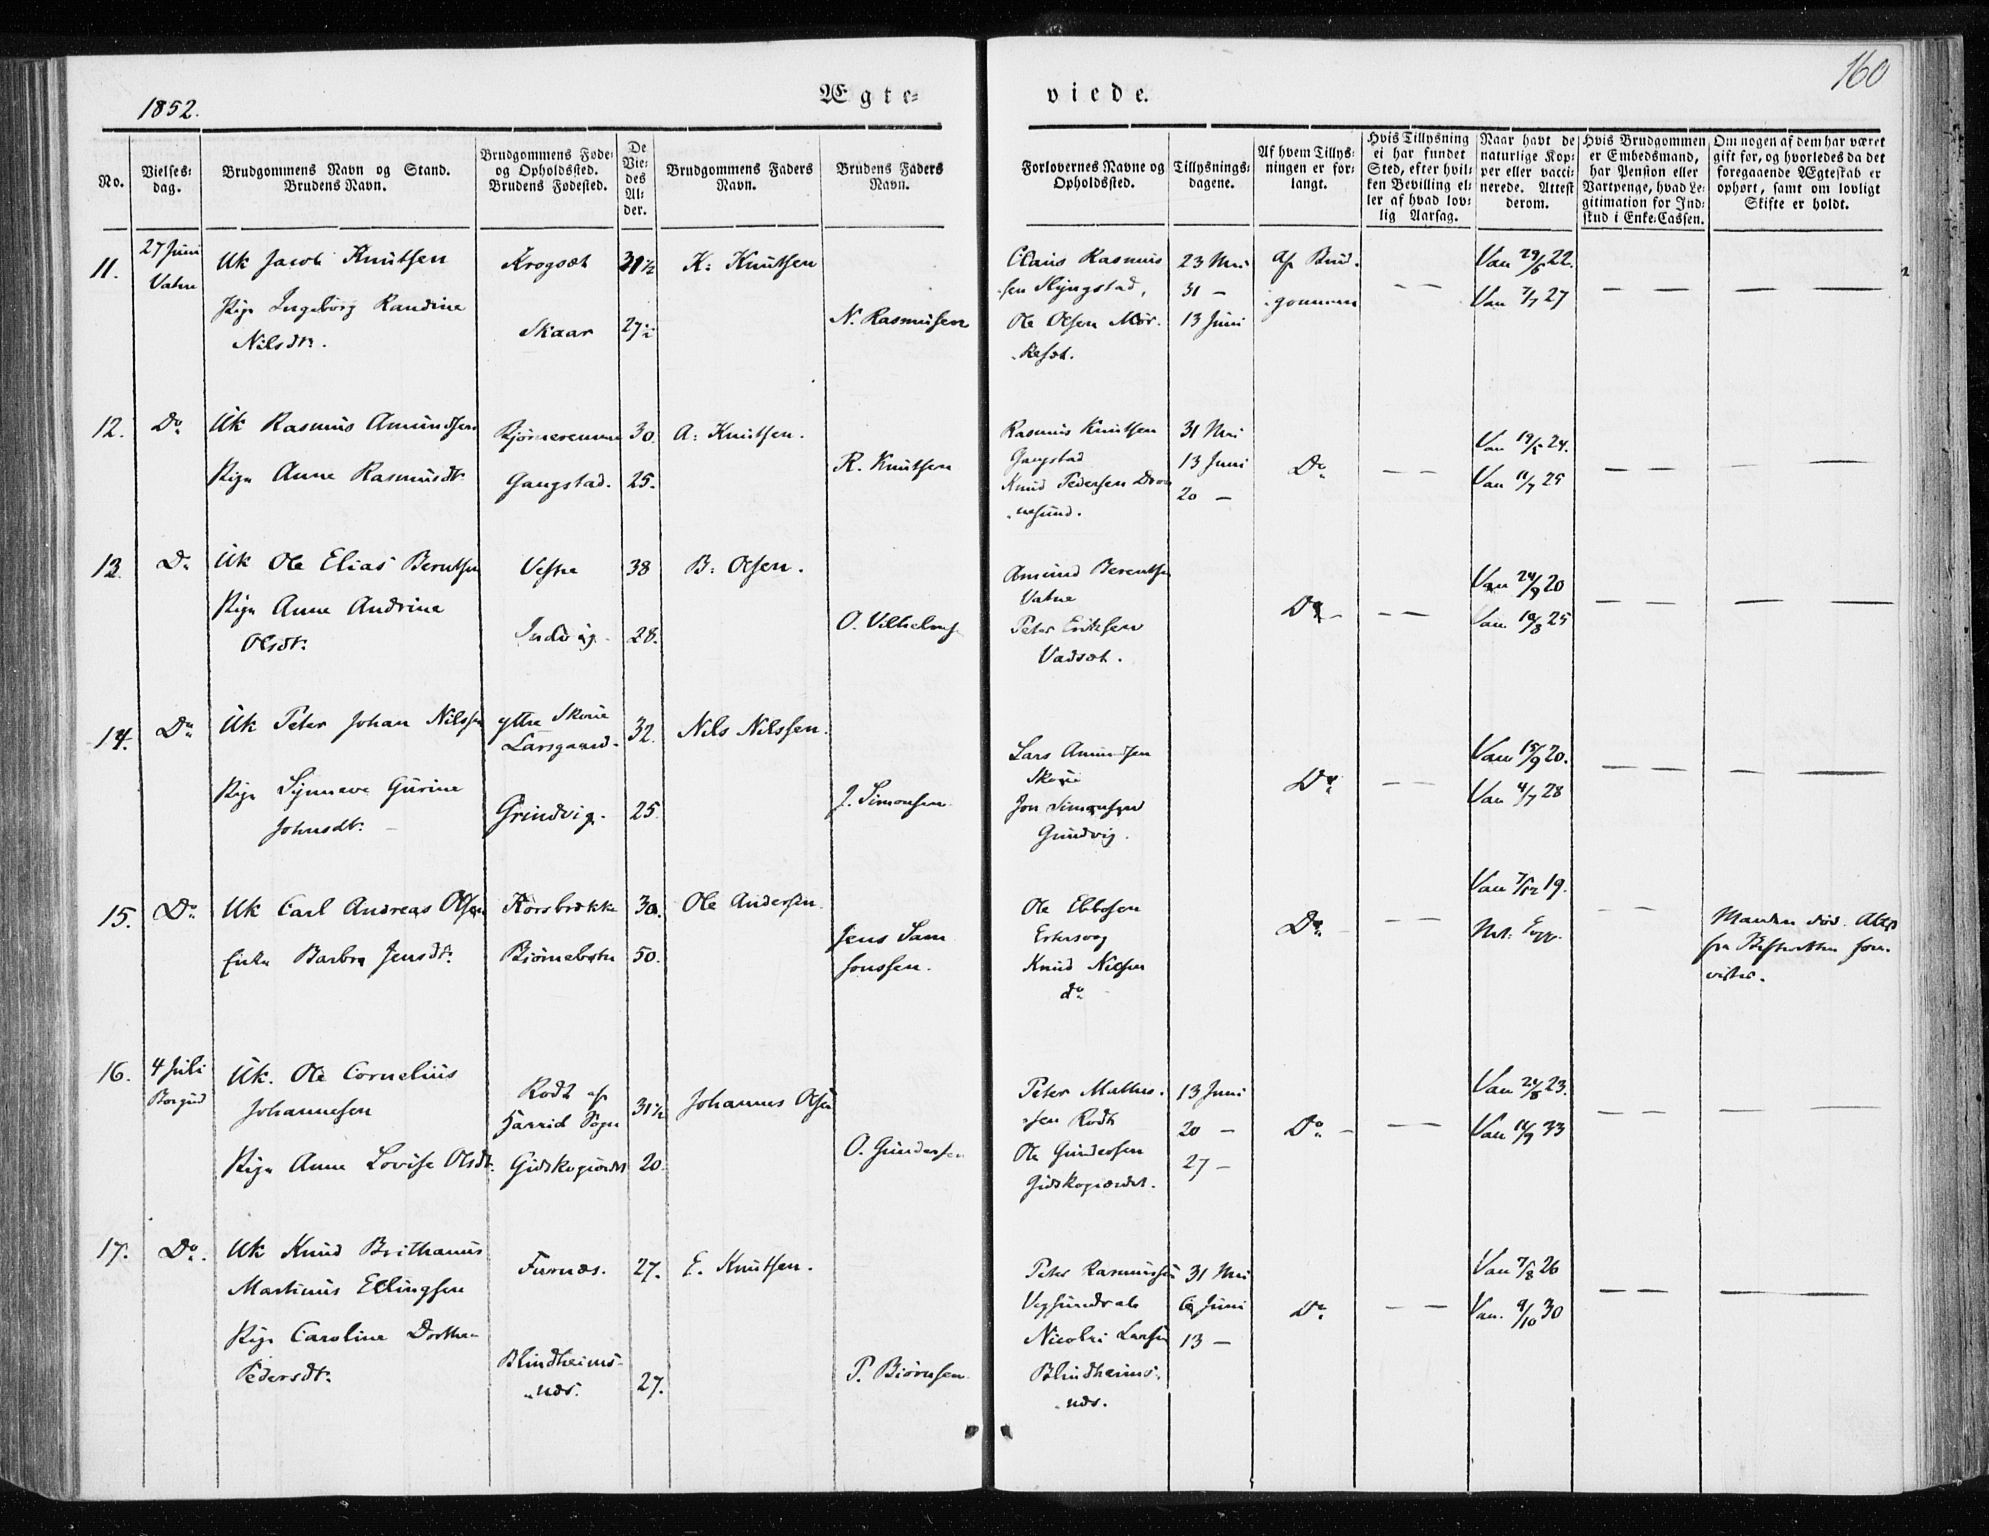 1852.
Ægte-
viede.
160
No.
Vielses-
dag.
Brudgommens Navn og Stand.
Brudens Navn.
Brudgommens Føde-
og Opholdssted.
Brudens Fødested.
De
Vie-
des
Al-
der.
Brudgommens Faders
Navn.
Brudens Faders
Navn.
Forlovernes Navne og
Opholdssted.
Tillysnings-
dagene.
Af hvem Tillys-
ningen er for-
langt.
Hvis Tillysning
ei har fundet
Sted, efter hvil-
ken Bevilling el-
ler af hvad lov-
lig Aarsag.
Naar havt de
naturlige Kop-
per eller vacci-
nerede. Attest
derom.
Hvis Brudgommen
er Embedsmand,
har Pension eller
Vartpenge, hvad Le-
gitimation for Ind-
skud i Enke-Cassen.
Om nogen af dem har været
gift før, og hvorledes da det
foregaaende Ægteskab er
ophørt, samt om lovligt
Skifte er holdt.
11.
27 Juni
Vatne
Uk Jacob Knutsen
Pige Ingeborg Randine
Nilsdtr.
Krogsæt
Skaar
31½
27½
K: Knutsen
N. Rasmusen
Claus Rasmus
sen Slyngstad,
Ole Olsen Mør-
-kesæt.
23 Mai
31 —
13 Juni
af Brud-
-gommen
— —
Vac 29/6 22.
Vac 7/7 27
— —
— —
12.
Do
Uk Rasmus Amundsen
Pige Anne Rasmusdtr
Bjørneremme
Gangstad.
30.
25.
A: Knutsen.
R. Knutsen
Rasmus Knutsen
Gangstad
Knud Pedersen
-nesund.
31 Mai
13 Juni
20 —
Do
— —
Vac 19/5 24.
Vac 11/7 25
— —
— —
13.
Do
Uk Ole Elias Berntsen
Pige Anne Andrine
Olsdtr
Vestre
Indvig.
38
28.
B: Olsen.
O. Vilhelms
Amund Berentsen
Vatne
Peter Eriksen
Vadsæt.
Do —
— —
Vac 24/9 20
Vac. 10/8 25
— —
— —
14.
Do
Uk Peter Johan Nilssen
Pige Synneve Gurine
Johnsdtr. —
yttre Skoue
Larsgaard-
Grindvig.
32.
25.
Nils Nilssen.
J. Simonsen
Lars Amundsen
Skoue
Jon Simonsen
Grindvig.
Do
— —
Vac 15/9 20.
Vac 4/7 28
— —
— —
15.
Do
Uk Carl Andreas Olsen
Enke Barbra Jensdtr.
Korsbrække
Bjørnebotn
30.
50.
Ole Andersen
Jens Sam
sonssen.
Ole Ebbesen
Ertesvog
Knud Nilsen
do
Do —
— —
Vac 7/12 19.
Nat. Kopp.
— —
Manden død. Attest
fra Skifteretten fore-
vistes.
16.
4 Juli
Borgund
Uk. Ole Cornelius
Johannesen
Pige Anne Lovise Olsdtr.
Rødt af
Harrid Sogn
Gidskegiærdet
31½
20.
Johannes Olsen
O. Gundersen
Peter Mathis-
-sen Rødt
Ole Gundersen
Gidskegiærdet.
13 Juni
20 —
27 —
Do —
— —
Vac 24/8 23.
Vac 14/9 33
— —
— —
17.
Do.
Uk Knud Brithanus
Martinus Ellingsen
Pige Caroline Dorthe-
Pedersdtr
Furnæs.
Blindheims-
-næs.
27.
27.
E. Knutsen.
P. Biørnsen
Peter Rasmussen
Vegsundsæt
Nicolai Larsen
Blindheims-
-næs.
31 Mai
6 Juni
13 —
Do
— —
Vac 7/8 26
Vac. 9/10 30
— —
— —